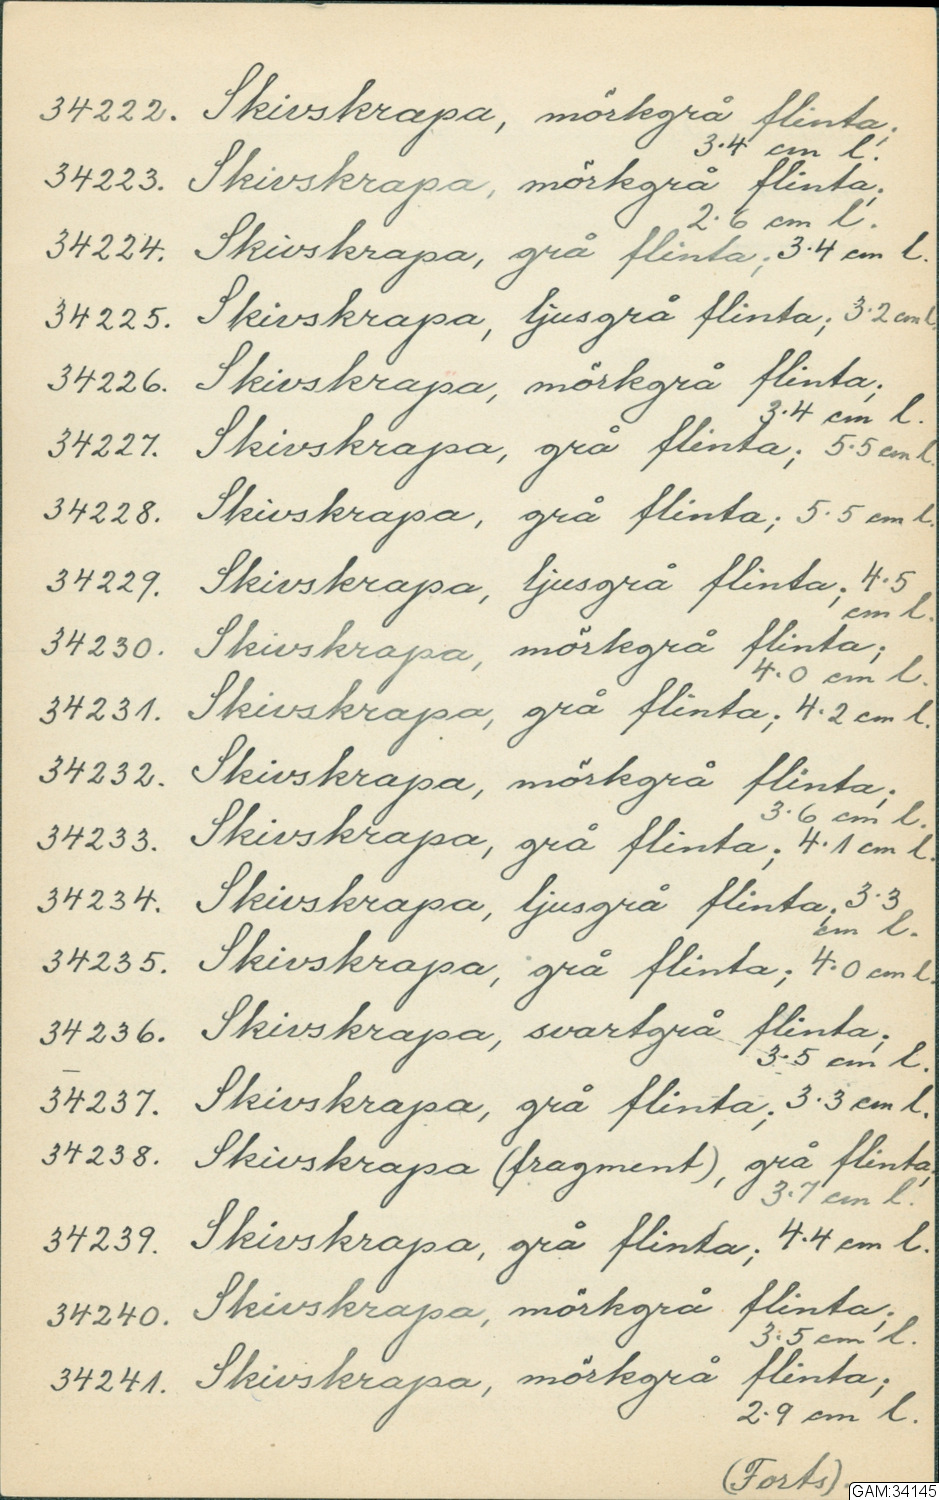 34222. Skivskrapa, mörkgrå flinta;
3.4 cm l.
34223. Skivskrapa, mörkgrå flinta;
2.6 cm l.
34224. Skivskrapa, grå flinta; 3.4 cm l.
34225. Skivskrapa, ljusgrå flinta; 3.2 cm l.
34226. Skivskrapa, mörkgrå flinta;
3.4 cm l.
34227. Skivskrapa, grå flinta; 5.5 cm l.
34228. Skivskrapa, grå flinta; 5.5 cm l.
34229. Skivskrapa, ljusgrå flinta; 4.5
cm l.
34230. Skivskrapa, mörkgrå flinta;
4.0 cm l.
34231. Skivskrapa, grå flinta; 4.2 cm l.
34232. Skivskrapa, mörkgrå flinta;
3.6 cm l.
34233. Skivskrapa, grå flinta; 4.1 cm l.
34234. Skivskrapa, ljusgrå flinta; 3.3
cm l.
34235. Skivskrapa, grå flinta; 4.0 cm l.
34236. Skivskrapa, svartgrå flinta;
3.5 cm l.
34237. Skivskrapa, grå flinta; 3.3 cm l.
34238. Skivskrapa (fragment), grå flinta;
3.7 cm l.
34239. Skivskrapa, grå flinta; 4.4 cm l.
34240. Skivskrapa, mörkgrå flinta;
3.5 cm l.
34241. Skivskrapa, mörkgrå flinta;
2.9 cm l.
(Forts).
GAM:34145